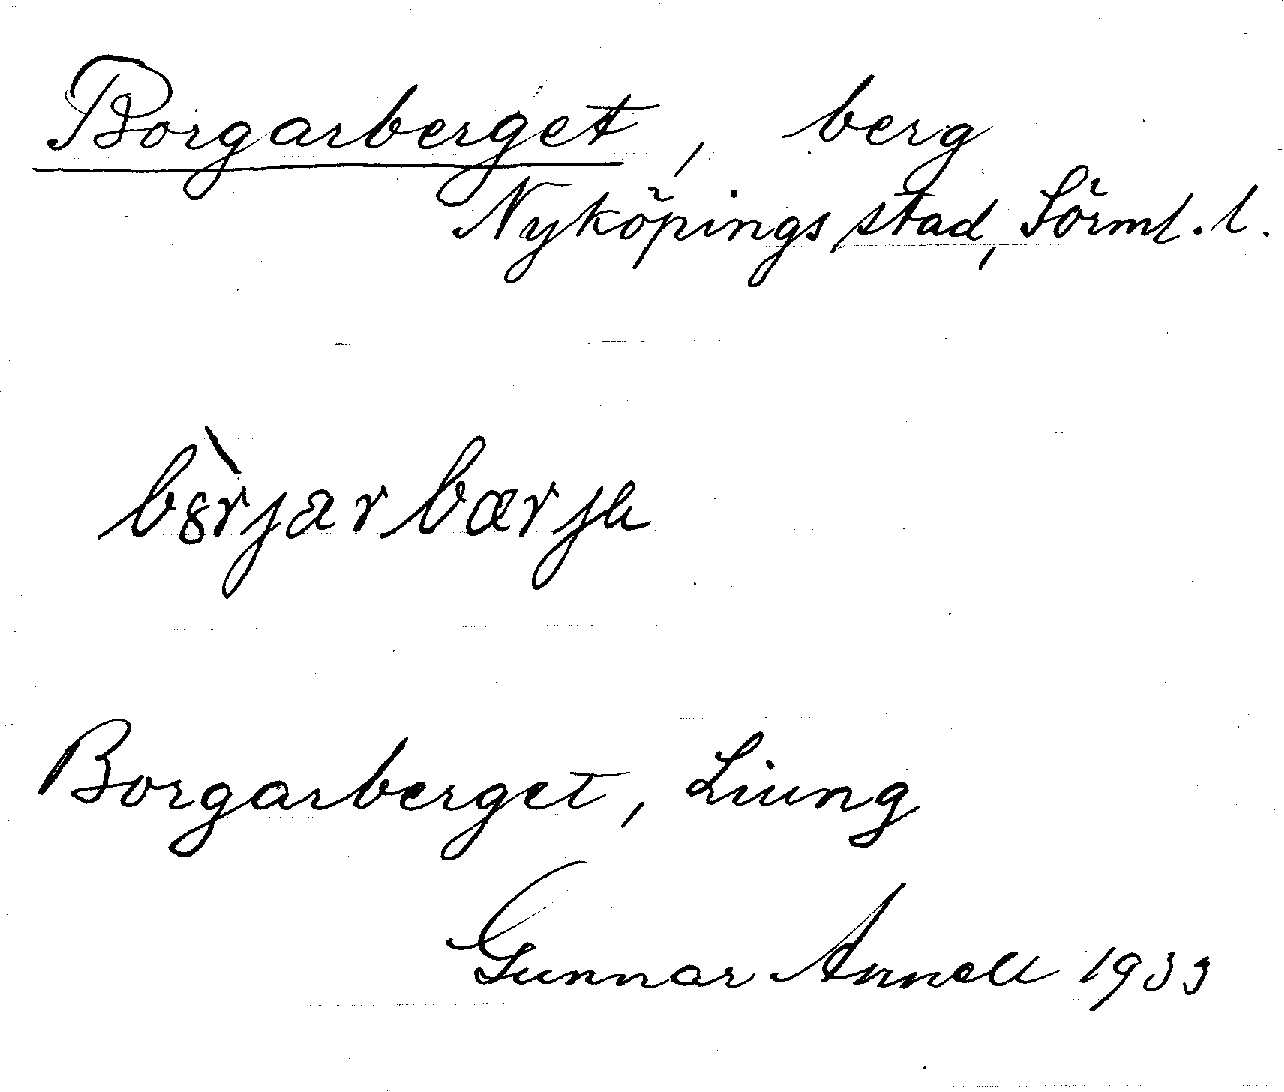 Borgarberget, berg
Nyköpings stad, Sörml. l.
bòrjarbærjə
Borgarberget, Liung
Gunnar Annell 1933